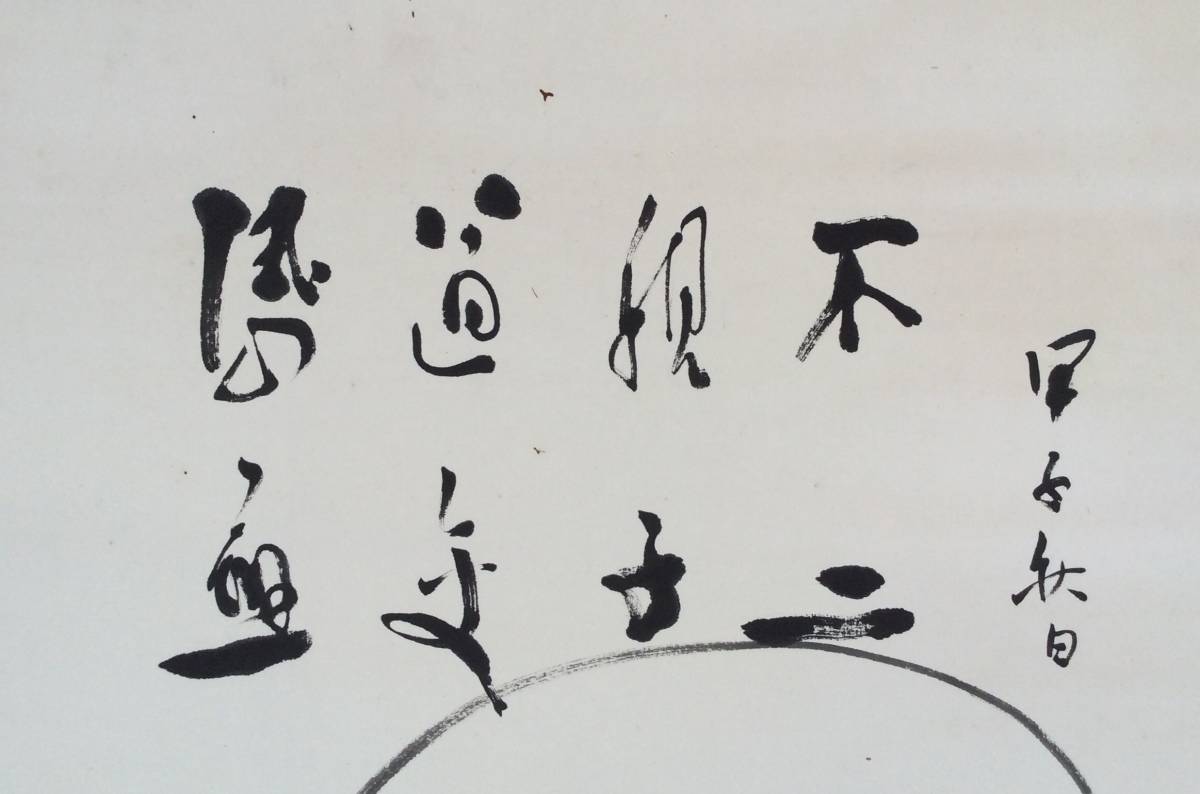 甲子秋日
不二
親子
道交